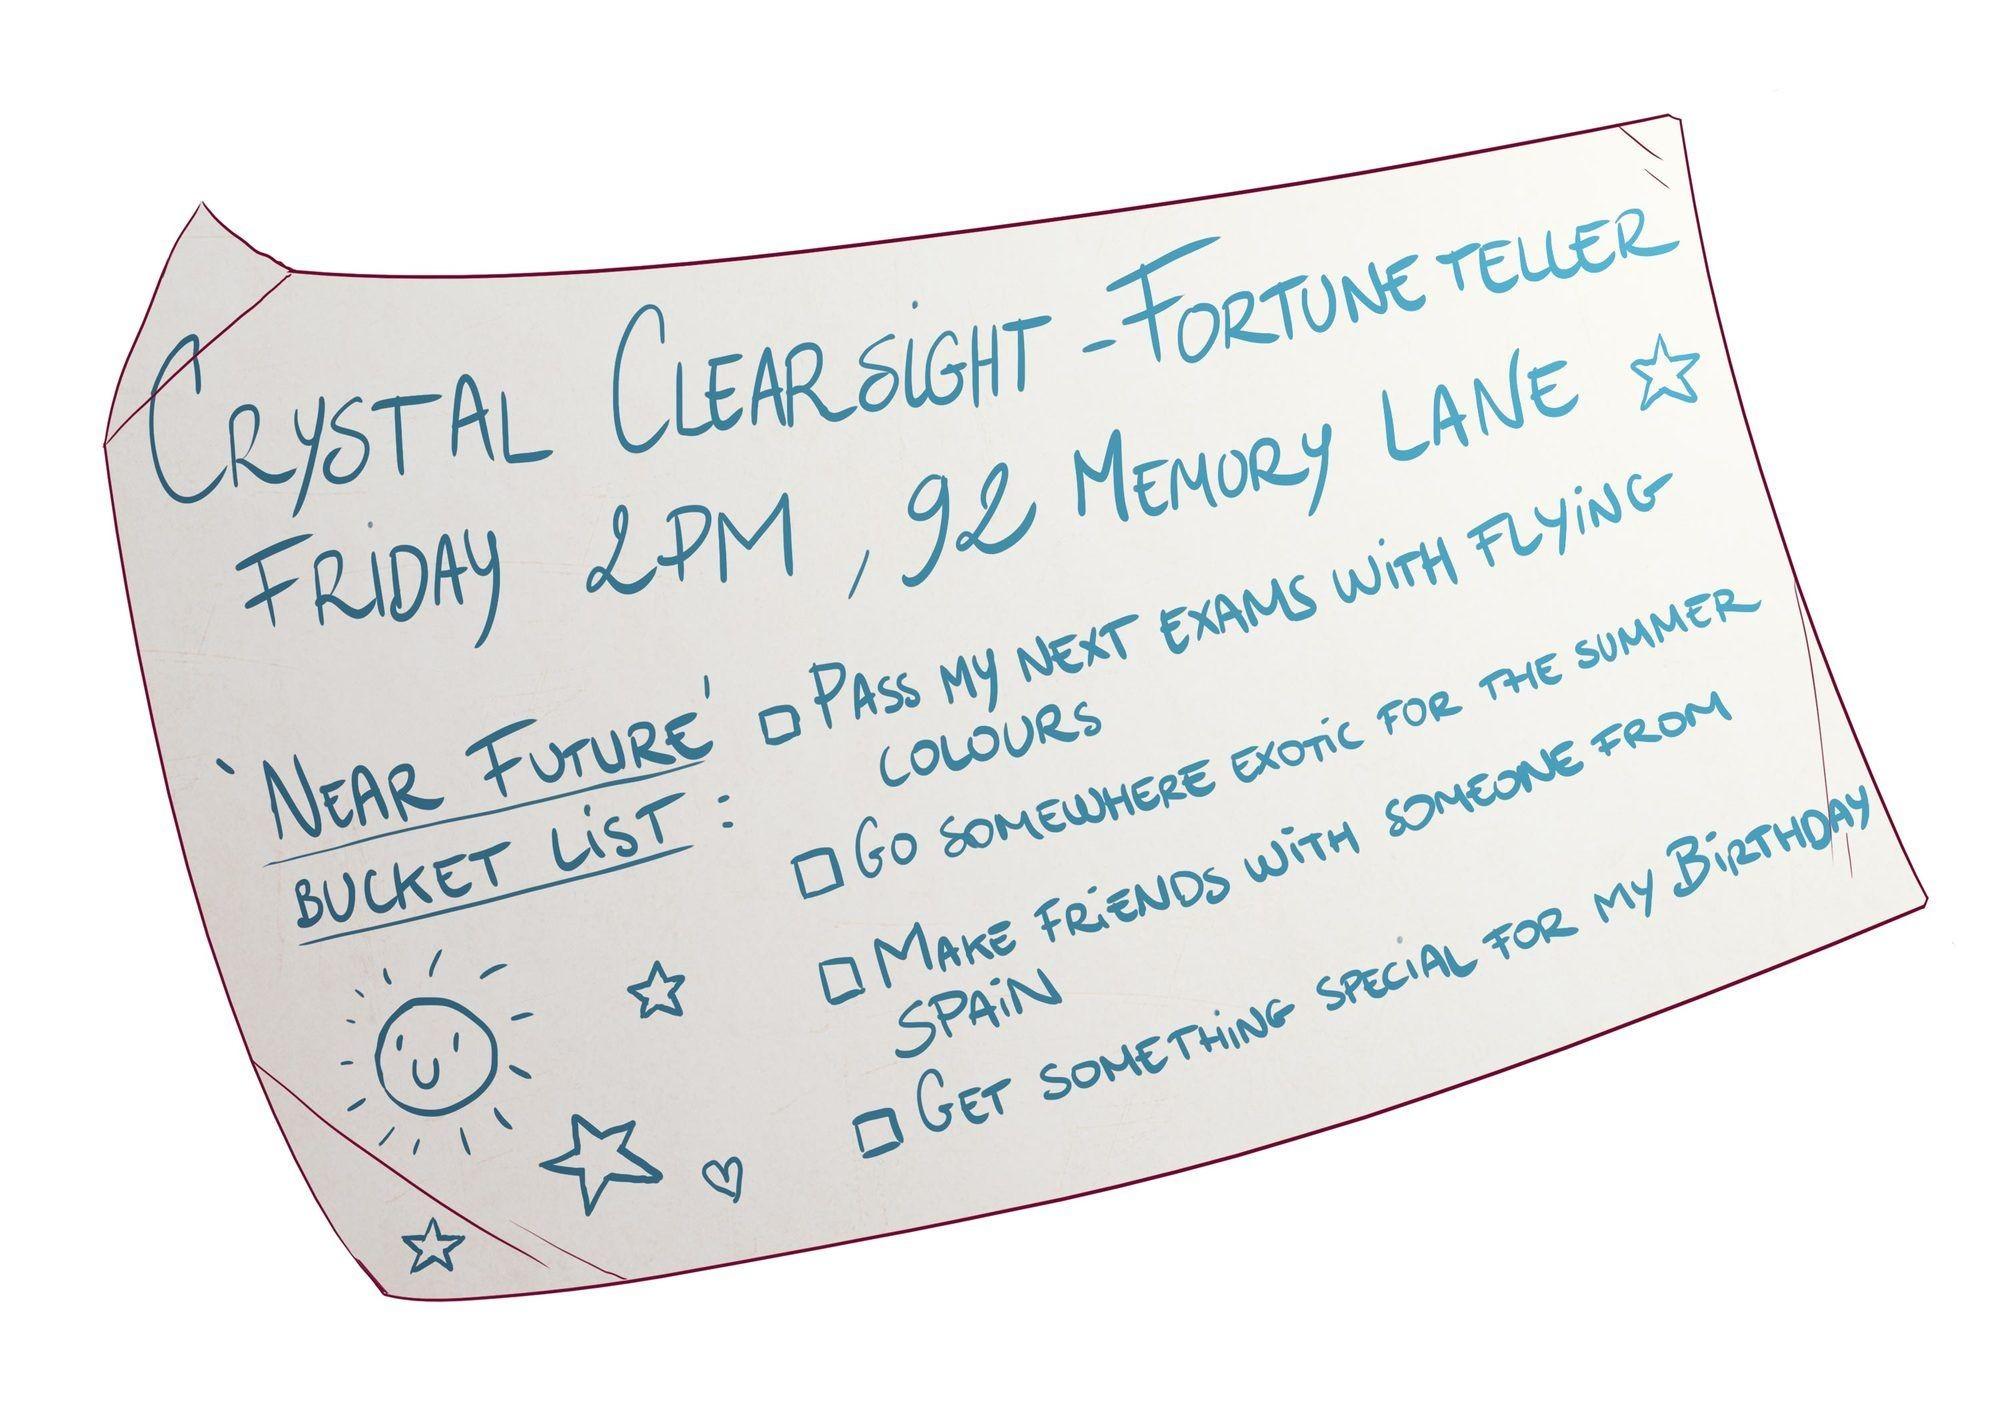 CRYSTAL CLEARSIGHT - FORTUNE TELLER
FRIDAY 2PM, 92 MEMORY LANE
'NEAR FUTURE'
BUCKET LIST :
PASS MY NEXT EXAMS WITH FLYING
COLOURS
GO SOMEWHERE EXOTIC FOR THE SUMMER
MAKE FRIENDS WITH SOMEONE FROM
SPAIN
GET SOMETHING SPECIAL FOR MY BIRTHDAY